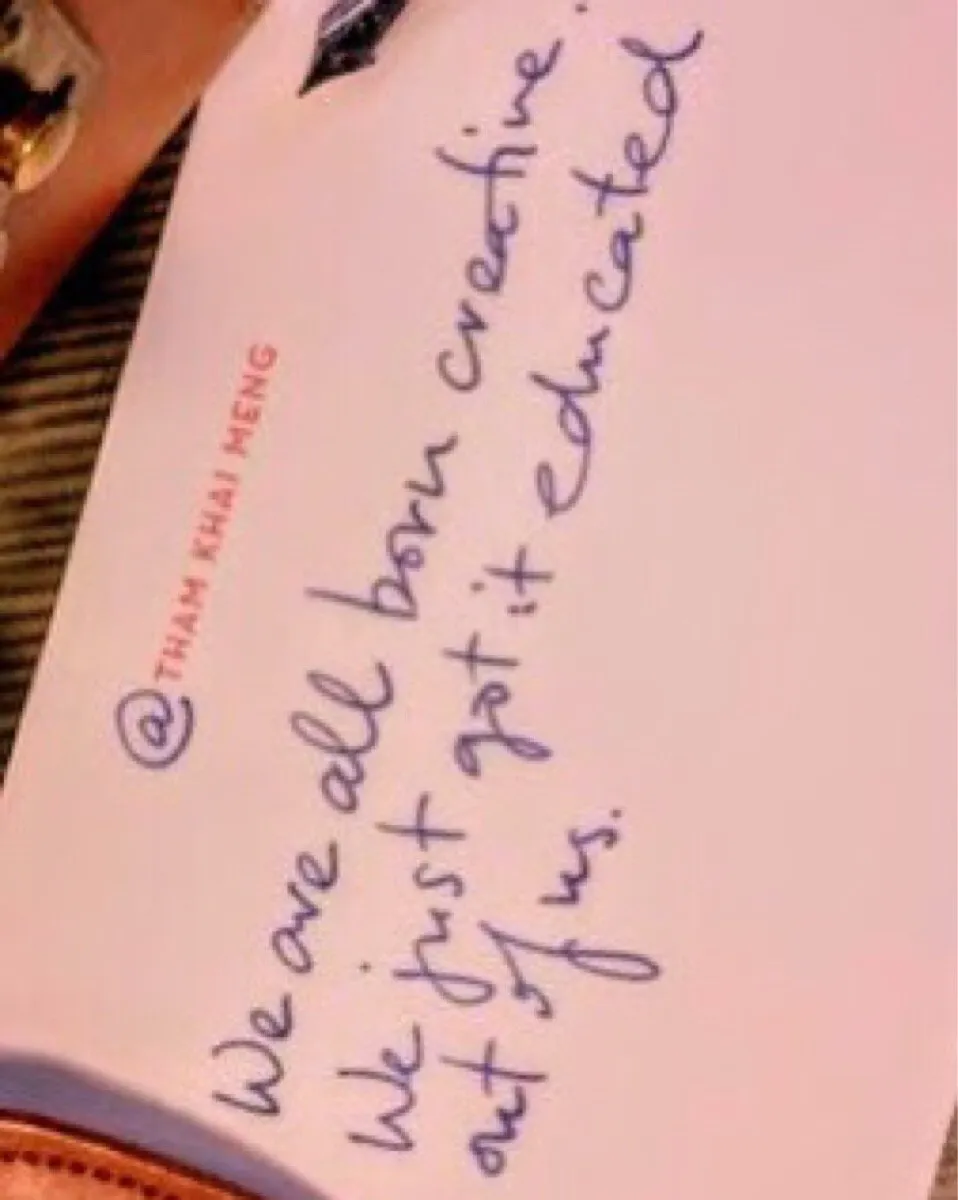 @THAM KHAI MENG
We are all born creative.
We just got it educated
out of us.